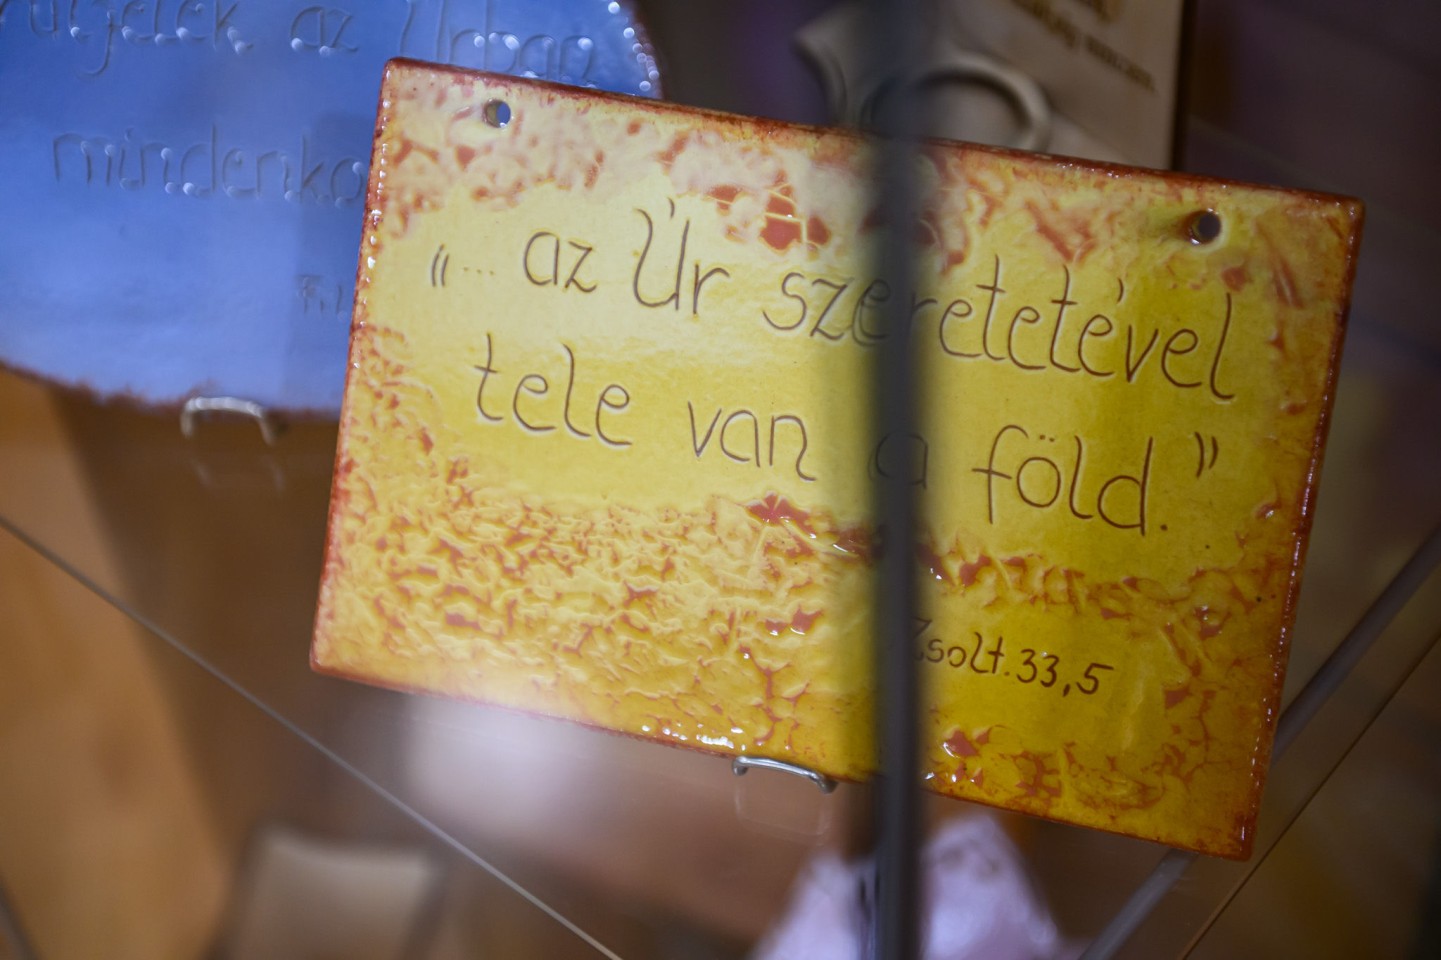 az Úrban
mindenko
„... az Úr szeretetével
tele van a föld.”
Zsolt.33,5